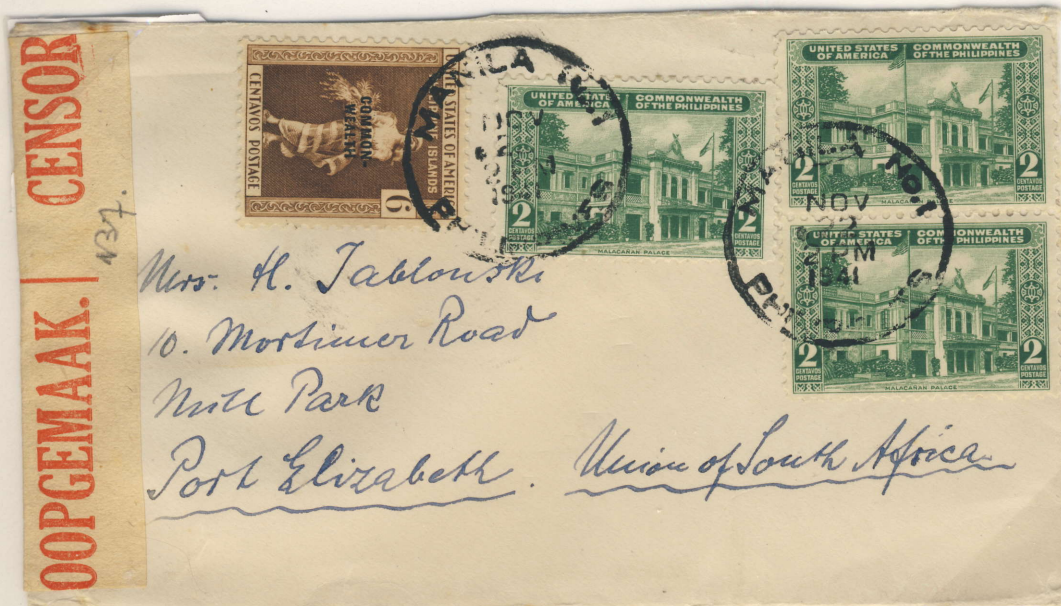 OOPGEMAAK. | CENSOR
N37.
UNITED STATES OF AMERICA
PHILIPPINE ISLANDS
COMMON-
WEALTH
CENTAVOS POSTAGE
6
MANILA No.1
NOV
1941
PHILIPPINES
UNITED STATES OF AMERICA
COMMONWEALTH OF THE PHILIPPINES
2
CENTAVOS
POSTAGE
2
CENTAVOS
POSTAGE
MALACAÑAN PALACE
UNITED STATES OF AMERICA
COMMONWEALTH OF THE PHILIPPINES
2
CENTAVOS
POSTAGE
2
CENTAVOS
POSTAGE
MALACAÑAN PALACE
MANILA No.1
NOV
2 PM
1941
PHILIPPINES
UNITED STATES OF AMERICA
COMMONWEALTH OF THE PHILIPPINES
2
CENTAVOS
POSTAGE
2
CENTAVOS
POSTAGE
MALACAÑAN PALACE
Mrs. H. Jablonski
10. Mortimer Road
Mill Park
Port Elizabeth. Union of South Africa